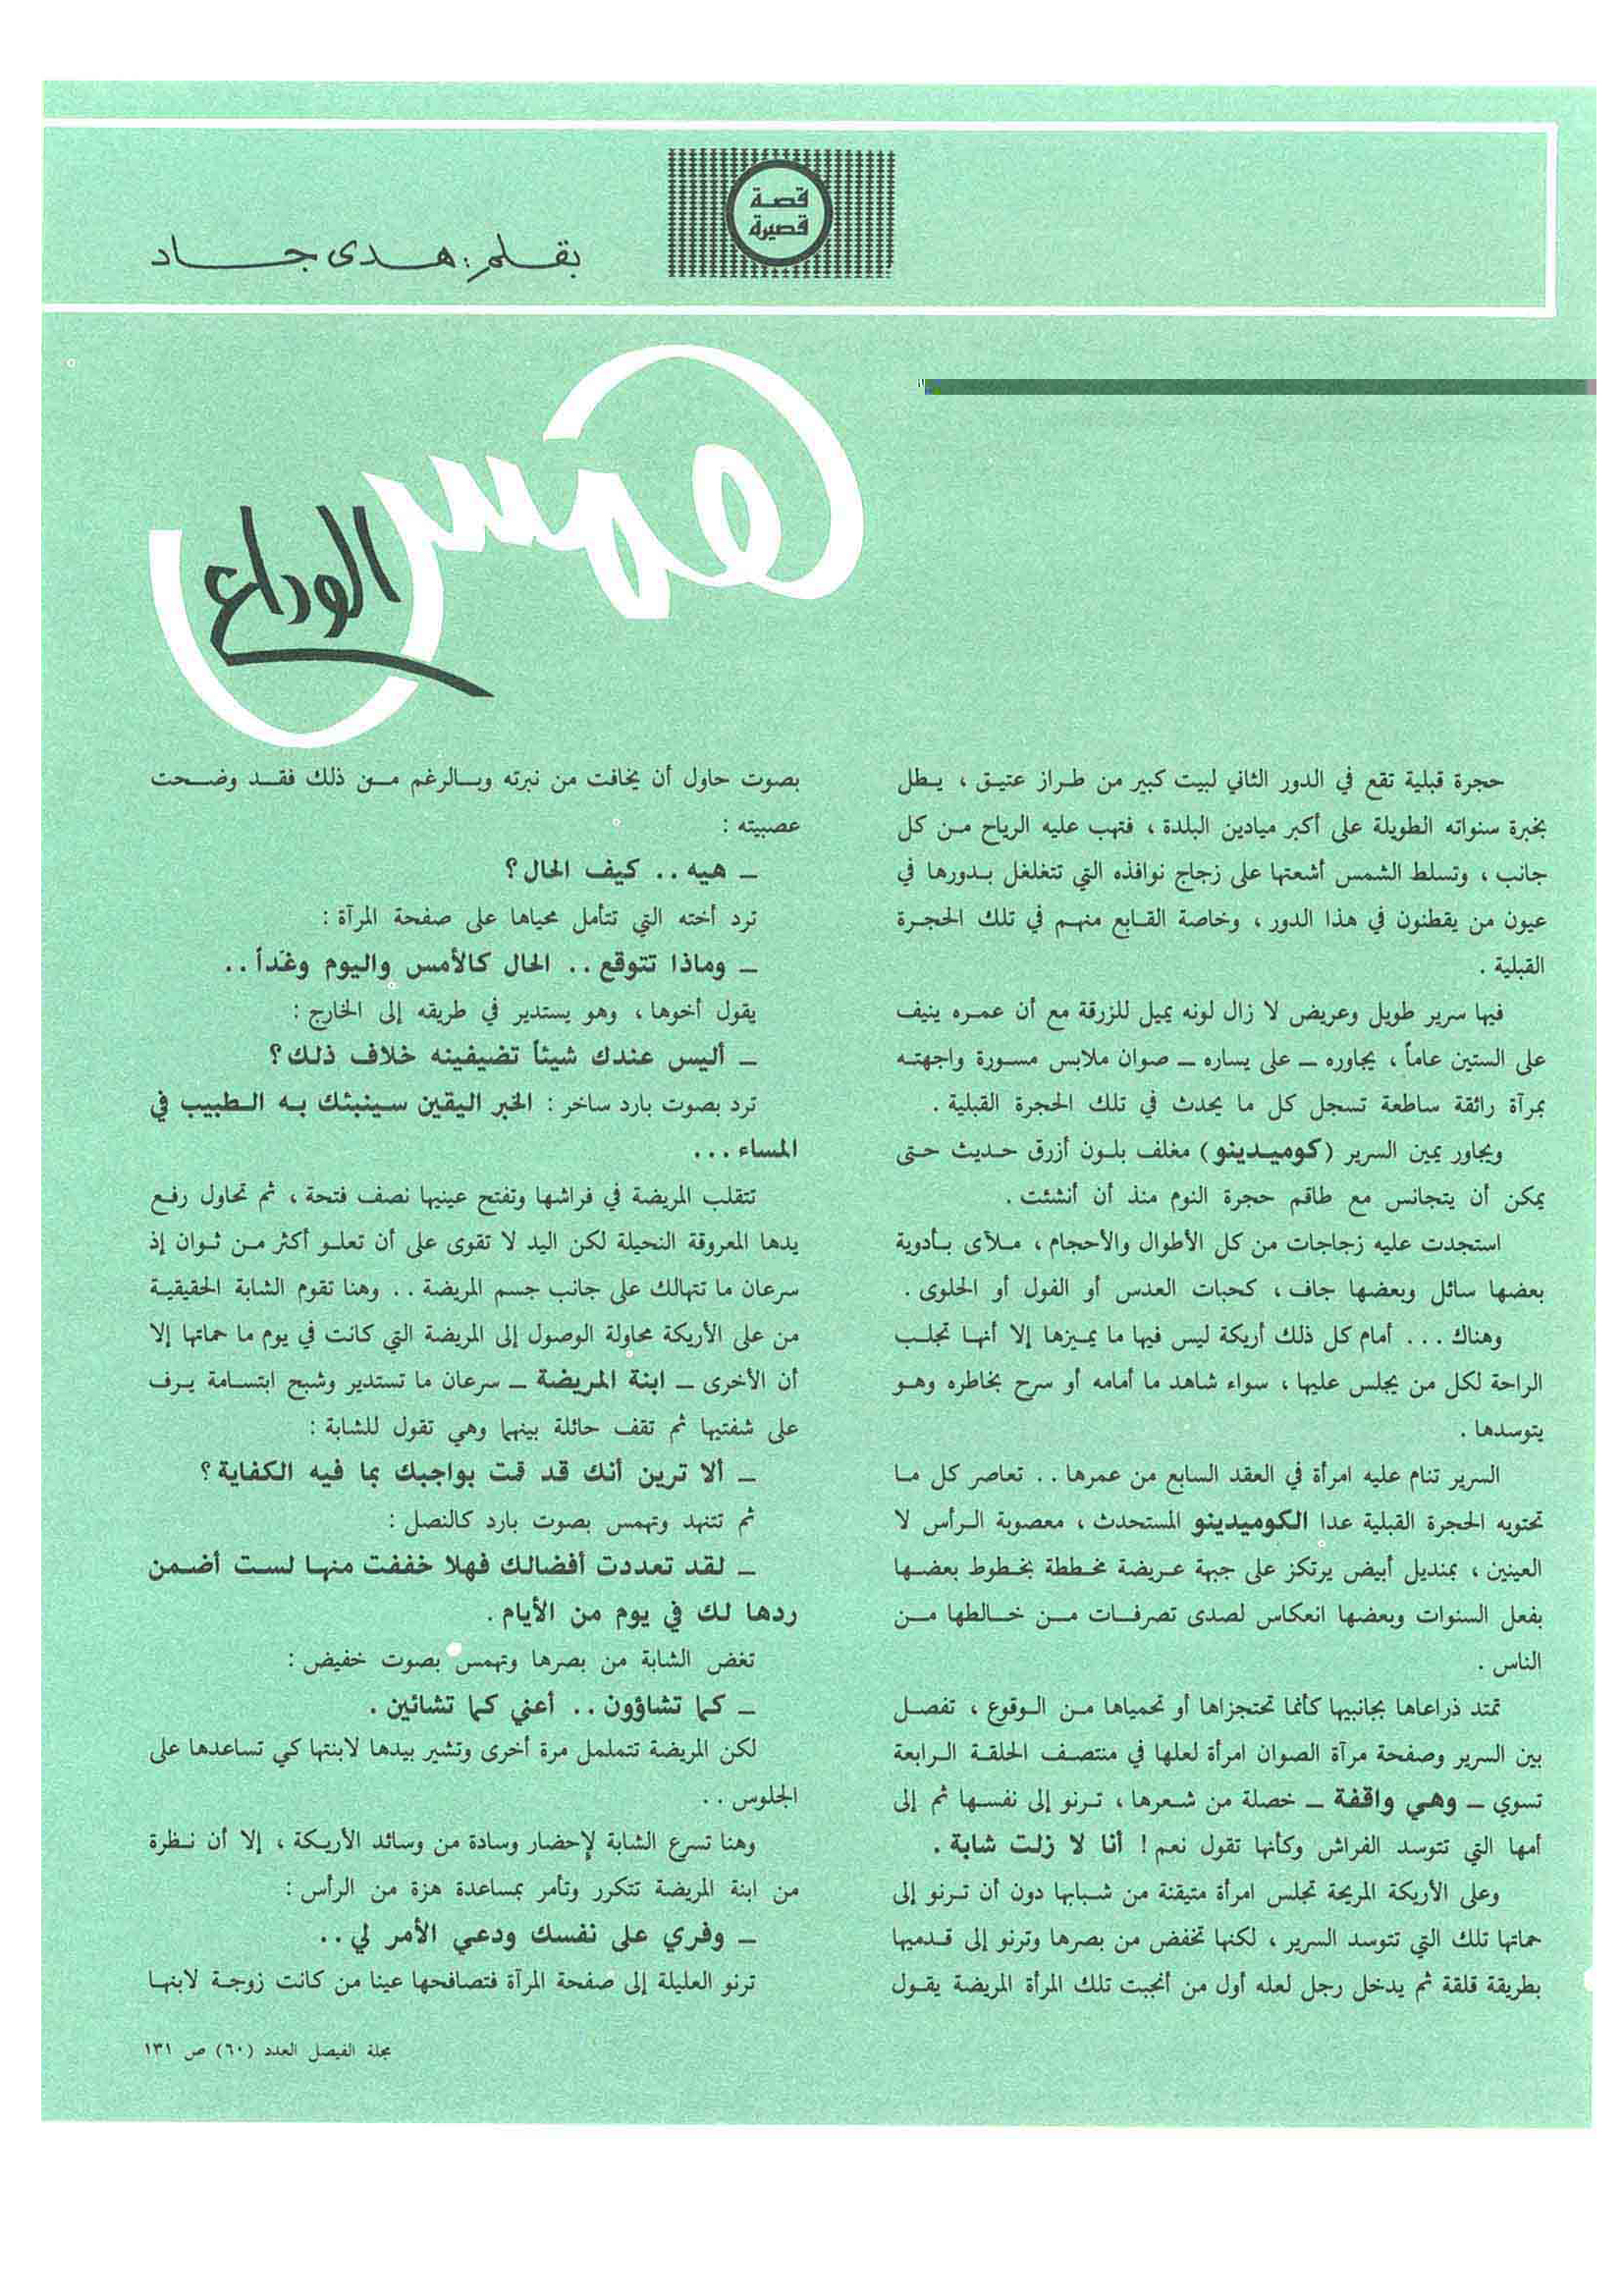 قصة
قصيرة
بقلم : هدى جاد
همس
الوداع
حجرة قبلية تقع في الدور الثاني لبيت كبير من طراز عتيق ، يطل
بخبرة سنواته الطويلة على أكبر ميادين البلدة ، فتهب عليه الرياح من كل
جانب ، وتسلط الشمس أشعتها على زجاج نوافذه التي تتغلغل بدورها في
عيون من يقطنون في هذا الدور ، وخاصة القابع منهم في تلك الحجرة
القبلية .
فيها سرير طويل وعريض لا زال لونه يميل للزرقة مع أن عمره ينيف
على الستين عاماً ، يجاوره – على يساره – صوان ملابس مسورة واجهته
بمرآة رائقة ساطعة تسجل كل ما يحدث في تلك الحجرة القبلية .
ويجاور يمين السرير (كوميدينو) مغلف بلون أزرق حديث حتى
يمكن أن يتجانس مع طاقم حجرة النوم منذ أن أنشئت .
استجدت عليه زجاجات من كل الأطوال والأحجام ، ملآى بأدوية
بعضها سائل وبعضها جاف ، كحبات العدس أو الفول أو الحلوى .
وهناك ... أمام كل ذلك أريكة ليس فيها ما يميزها إلا أنها تجلب
الراحة لكل من يجلس عليها ، سواء شاهد ما أمامه أو سرح بخاطره وهو
يتوسدها .
السرير تنام عليه امرأة في العقد السابع من عمرها .. تعاصر كل ما
تحتويه الحجرة القبلية عدا الكوميدينو المستحدث ، معصوبة الرأس لا
العينين ، بمنديل أبيض يرتكز على جبهة عريضة مخططة بخطوط بعضها
بفعل السنوات وبعضها انعكاس لصدى تصرفات من خالطها من
الناس .
تمتد ذراعاها بجانبيها كأنما تحتجزاها أو تحمياها من الوقوع ، تفصل
بين السرير وصفحة مرآة الصوان امرأة لعلها في منتصف الحلقة الرابعة
تسوي – وهي واقفة – خصلة من شعرها ، ترنو إلى نفسها ثم إلى
أمها التي تتوسد الفراش وكأنها تقول نعم ! أنا لا زلت شابة .
وعلى الأريكة المريحة تجلس امرأة متيقنة من شبابها دون أن ترنو إلى
حماتها تلك التي تتوسد السرير ، لكنها تخفض من بصرها وترنو إلى قدميها
بطريقة قلقة ثم يدخل رجل لعله أول من أنجبت تلك المرأة المريضة يقول
بصوت حاول أن يخافت من نبرته وبالرغم من ذلك فقد وضحت
عصبيته :
– هيه .. كيف الحال ؟
ترد أخته التي تتأمل محياها على صفحة المرآة :
– وماذا تتوقع .. الحال كالأمس واليوم وغداً ..
يقول أخوها ، وهو يستدير في طريقه إلى الخارج :
– أليس عندك شيئاً تضيفينه خلاف ذلك ؟
ترد بصوت بارد ساخر : الخبر اليقين سينبئك به الطبيب في
المساء ...
تتقلب المريضة في فراشها وتفتح عينيها نصف فتحة ، ثم تحاول رفع
يدها المعروقة النحيلة لكن اليد لا تقوى على أن تعلو أكثر من ثوان إذ
سرعان ما تتهالك على جانب جسم المريضة .. وهنا تقوم الشابة الحقيقية
من على الأريكة محاولة الوصول إلى المريضة التي كانت في يوم ما حماتها إلا
أن الأخرى – ابنة المريضة – سرعان ما تستدير وشبح ابتسامة يرف
على شفتيها ثم تقف حائلة بينهما وهي تقول للشابة :
– ألا ترين أنك قد قمت بواجبك بما فيه الكفاية ؟
ثم تتنهد وتهمس بصوت بارد كالنصل :
– لقد تعددت أفضالك فهلا خففت منها لست أضمن
ردها لك في يوم من الأيام .
تغض الشابة من بصرها وتهمس بصوت خفيض :
– كما تشاؤون .. أعني كما تشائين .
لكن المريضة تتململ مرة أخرى وتشير بيدها لابنتها كي تساعدها على
الجلوس ..
وهنا تسرع الشابة لإحضار وسادة من وسائد الأريكة ، إلا أن نظرة
من ابنة المريضة تتكرر وتأمر بمساعدة هزة من الرأس :
– وفري على نفسك ودعي الأمر لي ..
ترنو العليلة إلى صفحة المرآة فتصافحها عينا من كانت زوجة لابنها
مجلة الفيصل العدد (٦٠) ص ١٣١